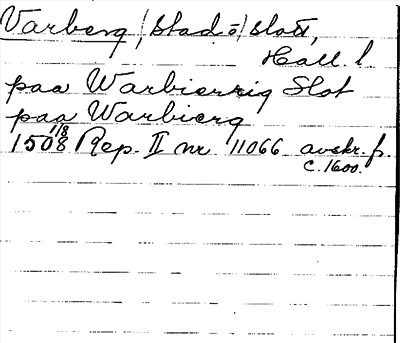 Varberg, (stad o) slott,
Hall. l.
paa Warbierrig Slot
paa Warbierg
1508 1/8 Rep. II nr 11066 avskr. fr.
c. 1600.